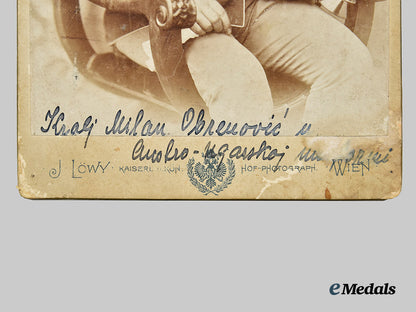 Kralj Milan Obrenović u
Austro-ugarskoj
J. Löwy KAISERL. KÖN. HOF-PHOTOGRAPH. WIEN
eMedals